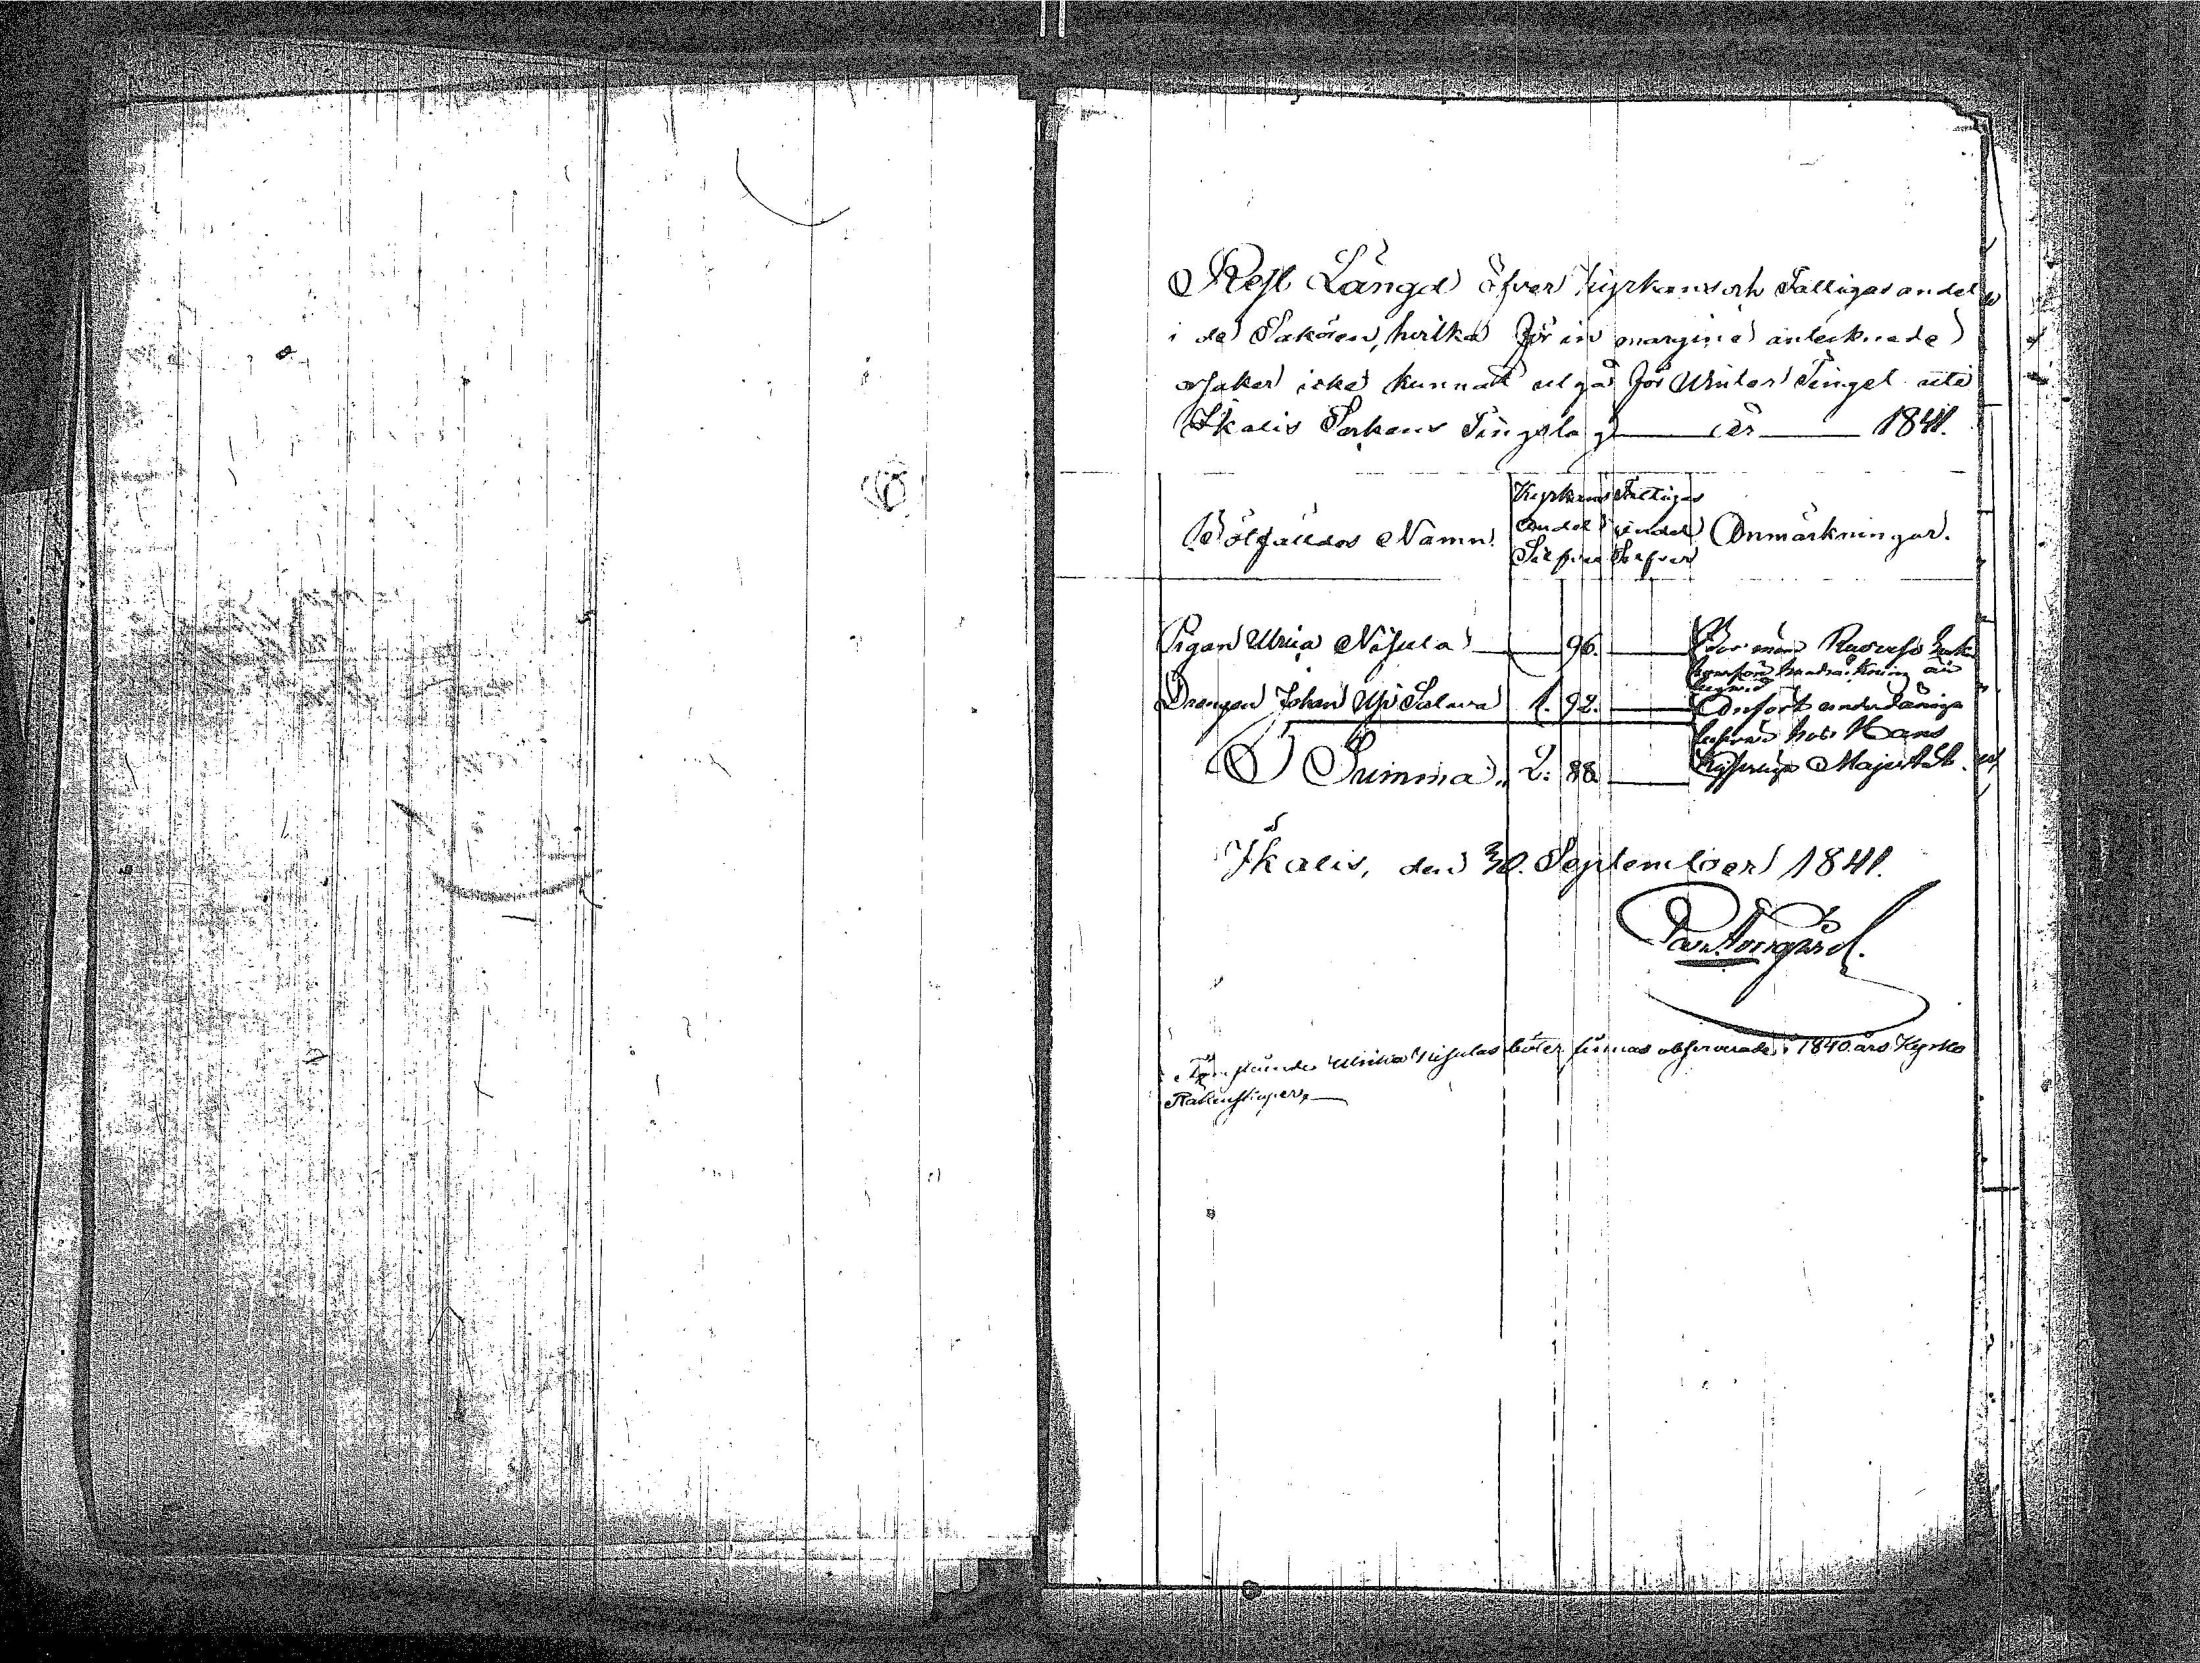 Rest Längd öfver Kyrkans och Fattigas andel
i de Sakören, hvilka för in margine antecknade
orsaker icke kunnat utgå för Winter Tinget uti
Ikalis Sokens Tingslag år 1841.
Bötfälldes Namn.
Kyrkans andel Silfver
Fattigas andel Silfver
Anmärkningar.
Pigan Ulrica Nisula 96.
Drängen Johan Yli Salava 1. 92.
Anfört underdåniga
besvär hos Hans
Kejserliga Majestät.
Summa 2. 88.
Ikalis, den 30. September 1841.
Ulrika Nisulas böter finnas observerade i 1840 års Kyrko
Räkenskaper,